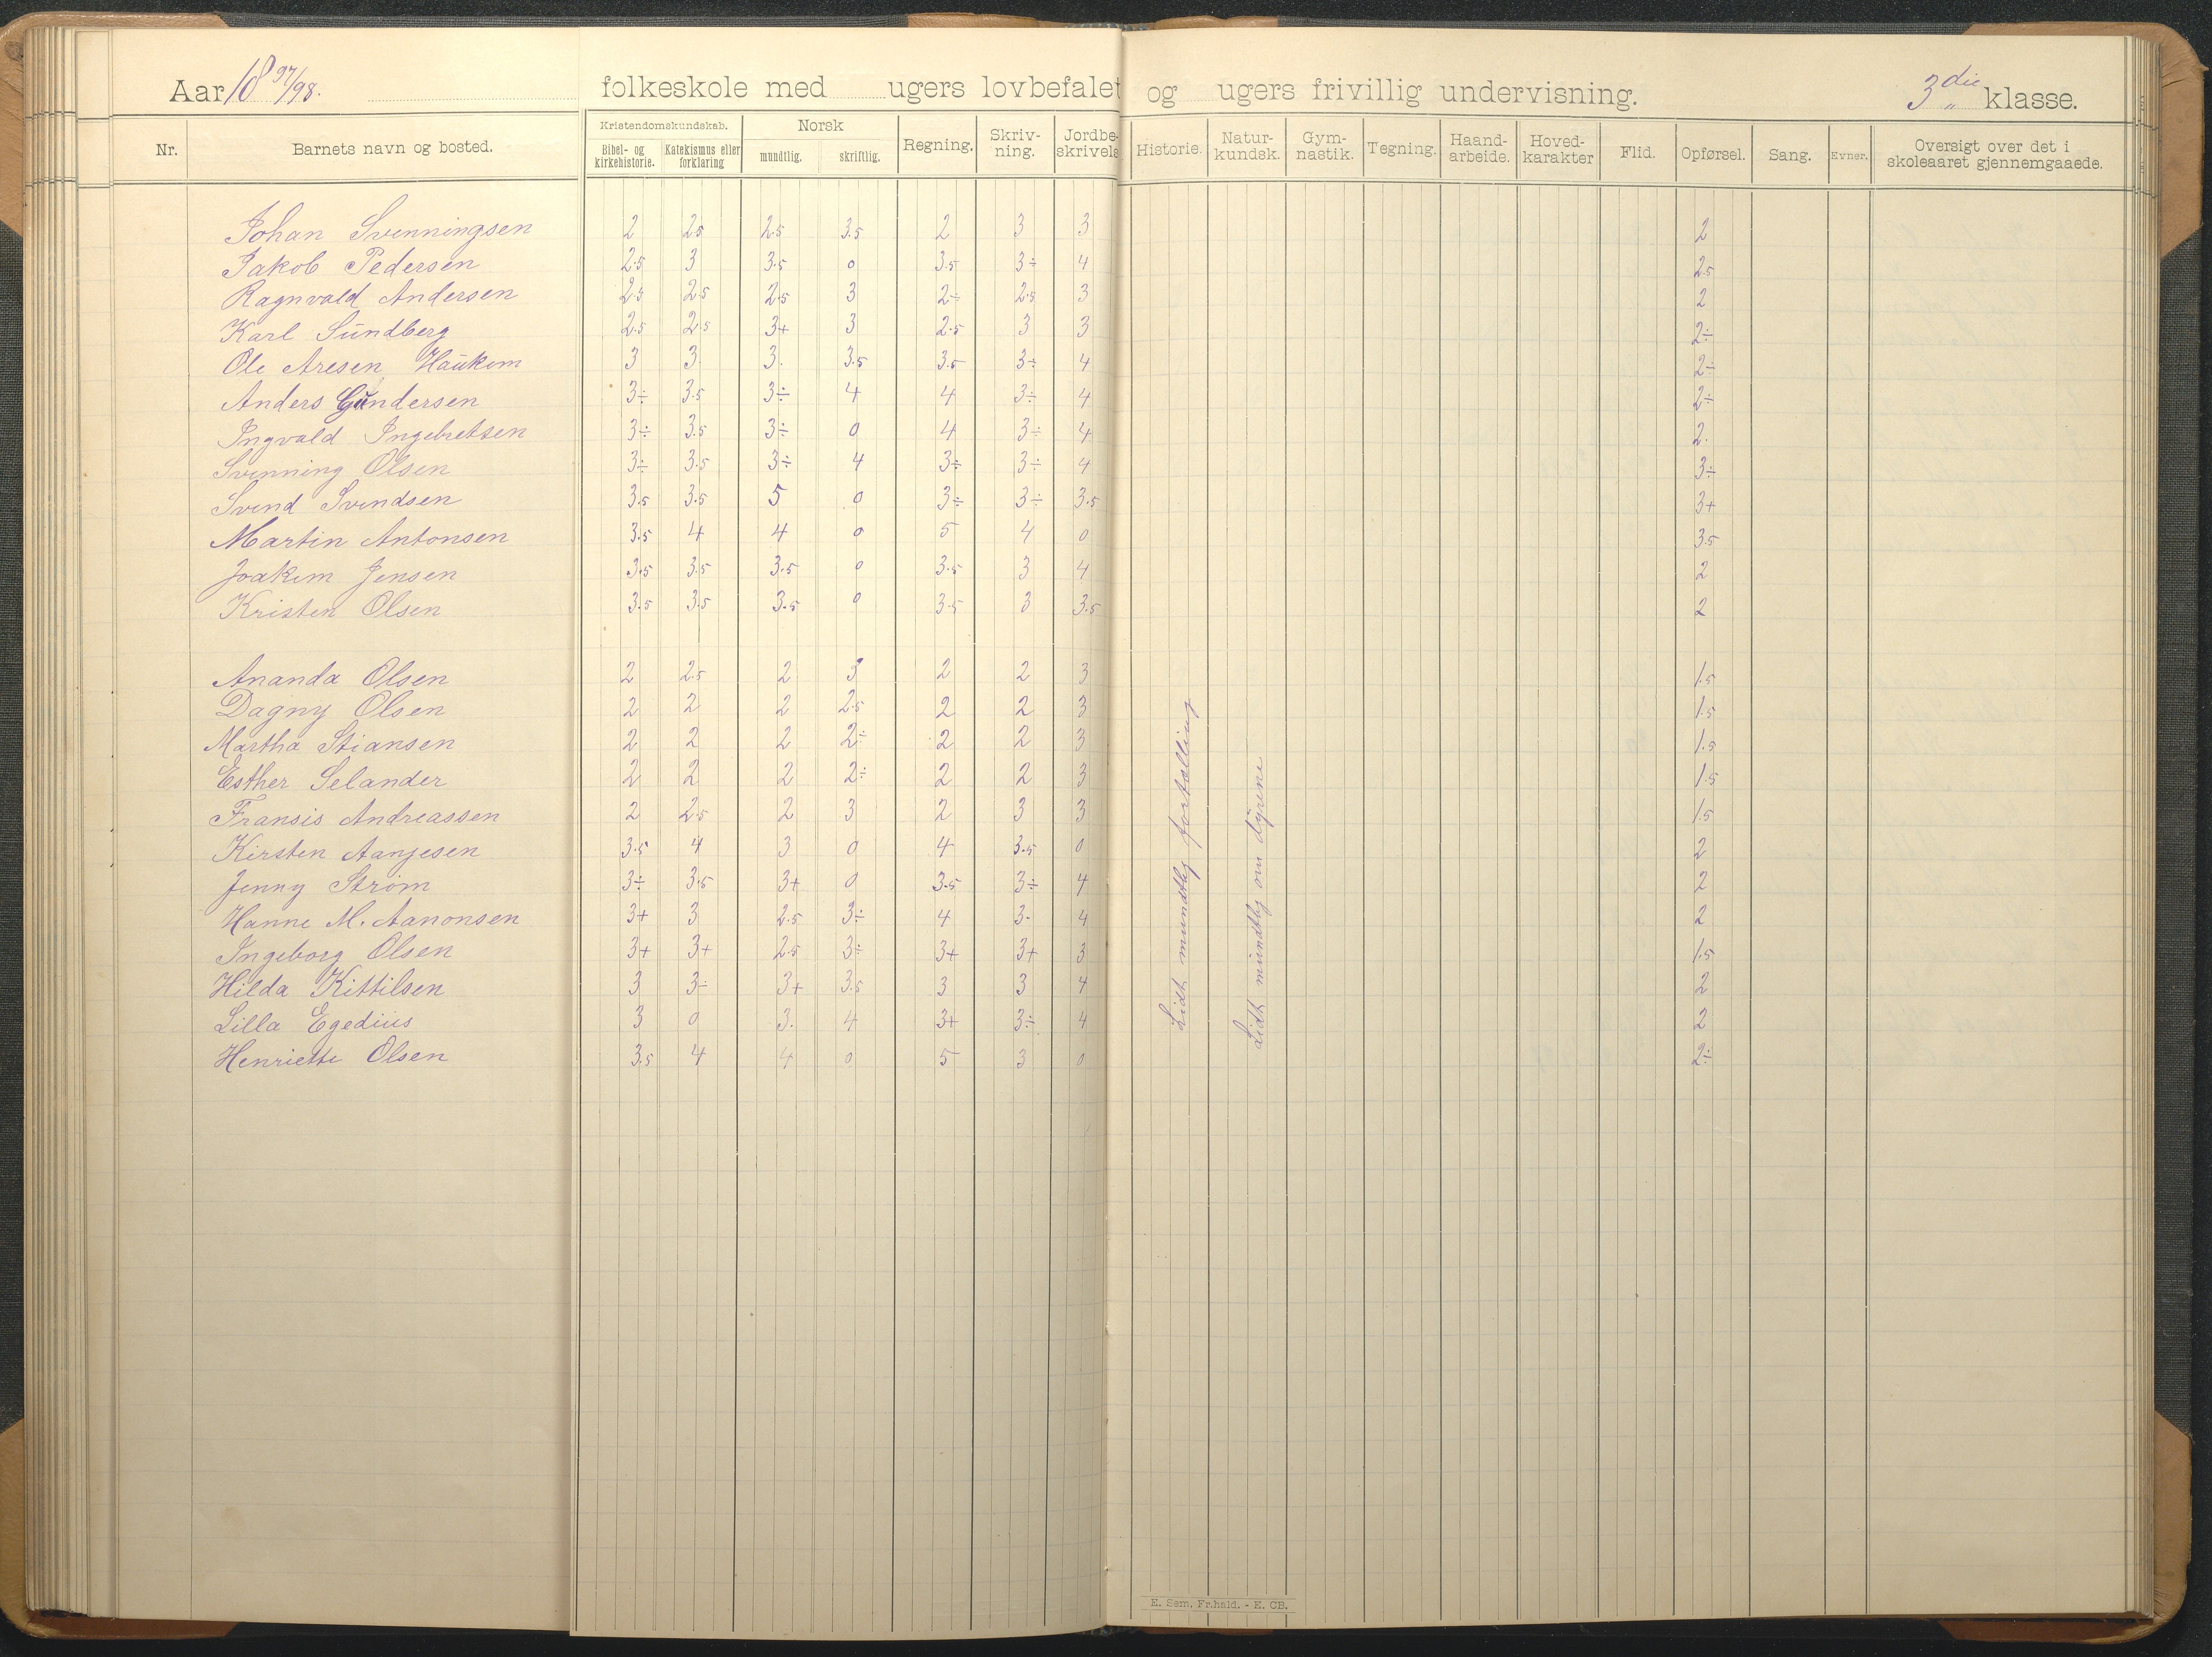 Aar 18 97/98. folkeskole med ugers lovbefalet og ugers frivillig undervisning. 3die klasse.
Nr. Barnets navn og bosted. Kristendomskundskab. Bibel- og kirkehistorie. Katekismus eller forklaring Norsk mundtlig. skriftlig. Regning. Skriv-ning. Jordbe-skrivels Historie. Natur-kundsk. Gym-nastik. Tegning. Haand-arbeide. Hoved-karakter Flid. Opførsel. Sang. Evner. Oversigt over det i skoleaaret gjennemgaaede.
Johan Svenningsen 2 2.5 2.5 3.5 2 3 3 2
Jakob Pedersen 2.5 3 3.5 0 3.5 3÷ 4 2.5
Ragnvald Andersen 2.5 2.5 2.5 3 2÷ 2.5 3 2
Karl Sundberg 2.5 2.5 3+ 3 2.5 3 3 2÷
Ole Aresen Haukom 3 3. 3. 3.5 3.5 3÷ 4 2÷
Anders Gundersen 3÷ 3.5 3÷ 4 4 3÷ 4 2÷
Ingvald Ingebretsen 3÷ 3.5 3÷ 0 4 3÷ 4 2.
Svenning Olsen 3÷ 3.5 3÷ 4 3÷ 3÷ 4 3÷
Svend Svendsen 3.5 3.5 5 0 3÷ 3÷ 3.5 3+
Martin Antonsen 3.5 4 4 0 5 4 0 3.5
Joakim Jensen 3.5 3.5 3.5 0 3.5 3 4 2
Kristen Olsen 3.5 3.5 3.5 0 3.5 3 3.5 2
Ananda Olsen 2 2.5 2 3 2 2 3 1.5
Dagny Olsen 2 2 2 2.5 2 2 3 1.5
Martha Stiansen 2 2 2 2÷ 2 2 3 1.5
Esther Selander 2 2 2 2÷ 2 2 3 1.5
Fransis Andreassen 2 2.5 2 3 2 3 3 1.5
Kirsten Aanjesen 3.5 4 3 0 4 3.5 0 2
Jenny Strøm 3÷ 3.5 3+ 0 3.5 3÷ 4 2
Hanne M. Aanonsen 3+ 3 2.5 3÷ 4 3- 4 2
Ingeborg Olsen 3+ 3+ 2.5 3÷ 3+ 3+ 3 1.5
Hilda Kittilsen 3 3÷ 3+ 3.5 3 3 4 2
Lilla Egedius 3 0 3. 4 3+ 3÷ 4 2
Henriette Olsen 3.5 4 4 0 5 3 0 2÷
Lidt mundtlig fortælling
Lidt mundtlig om dyrene
E. Sem, Fr.hald. - E. CB.